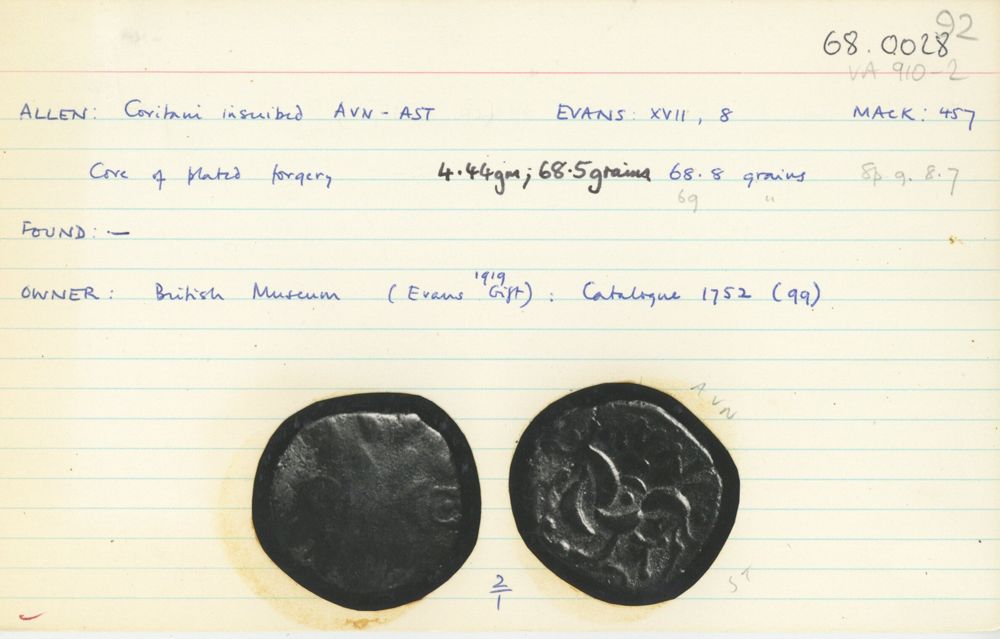 92
68.0028
VA 910-2
ALLEN: Coritani inscribed AVN - AST EVANS: XVII, 8 MACK: 457
Core of plated forgery 4.44gm; 68.5grains 68.8 grains Sp g. 8.7
69 "
FOUND: —
OWNER: British Museum (Evans 1919 Gift): Catalogue 1752 (99)
AVN
ST
2/1